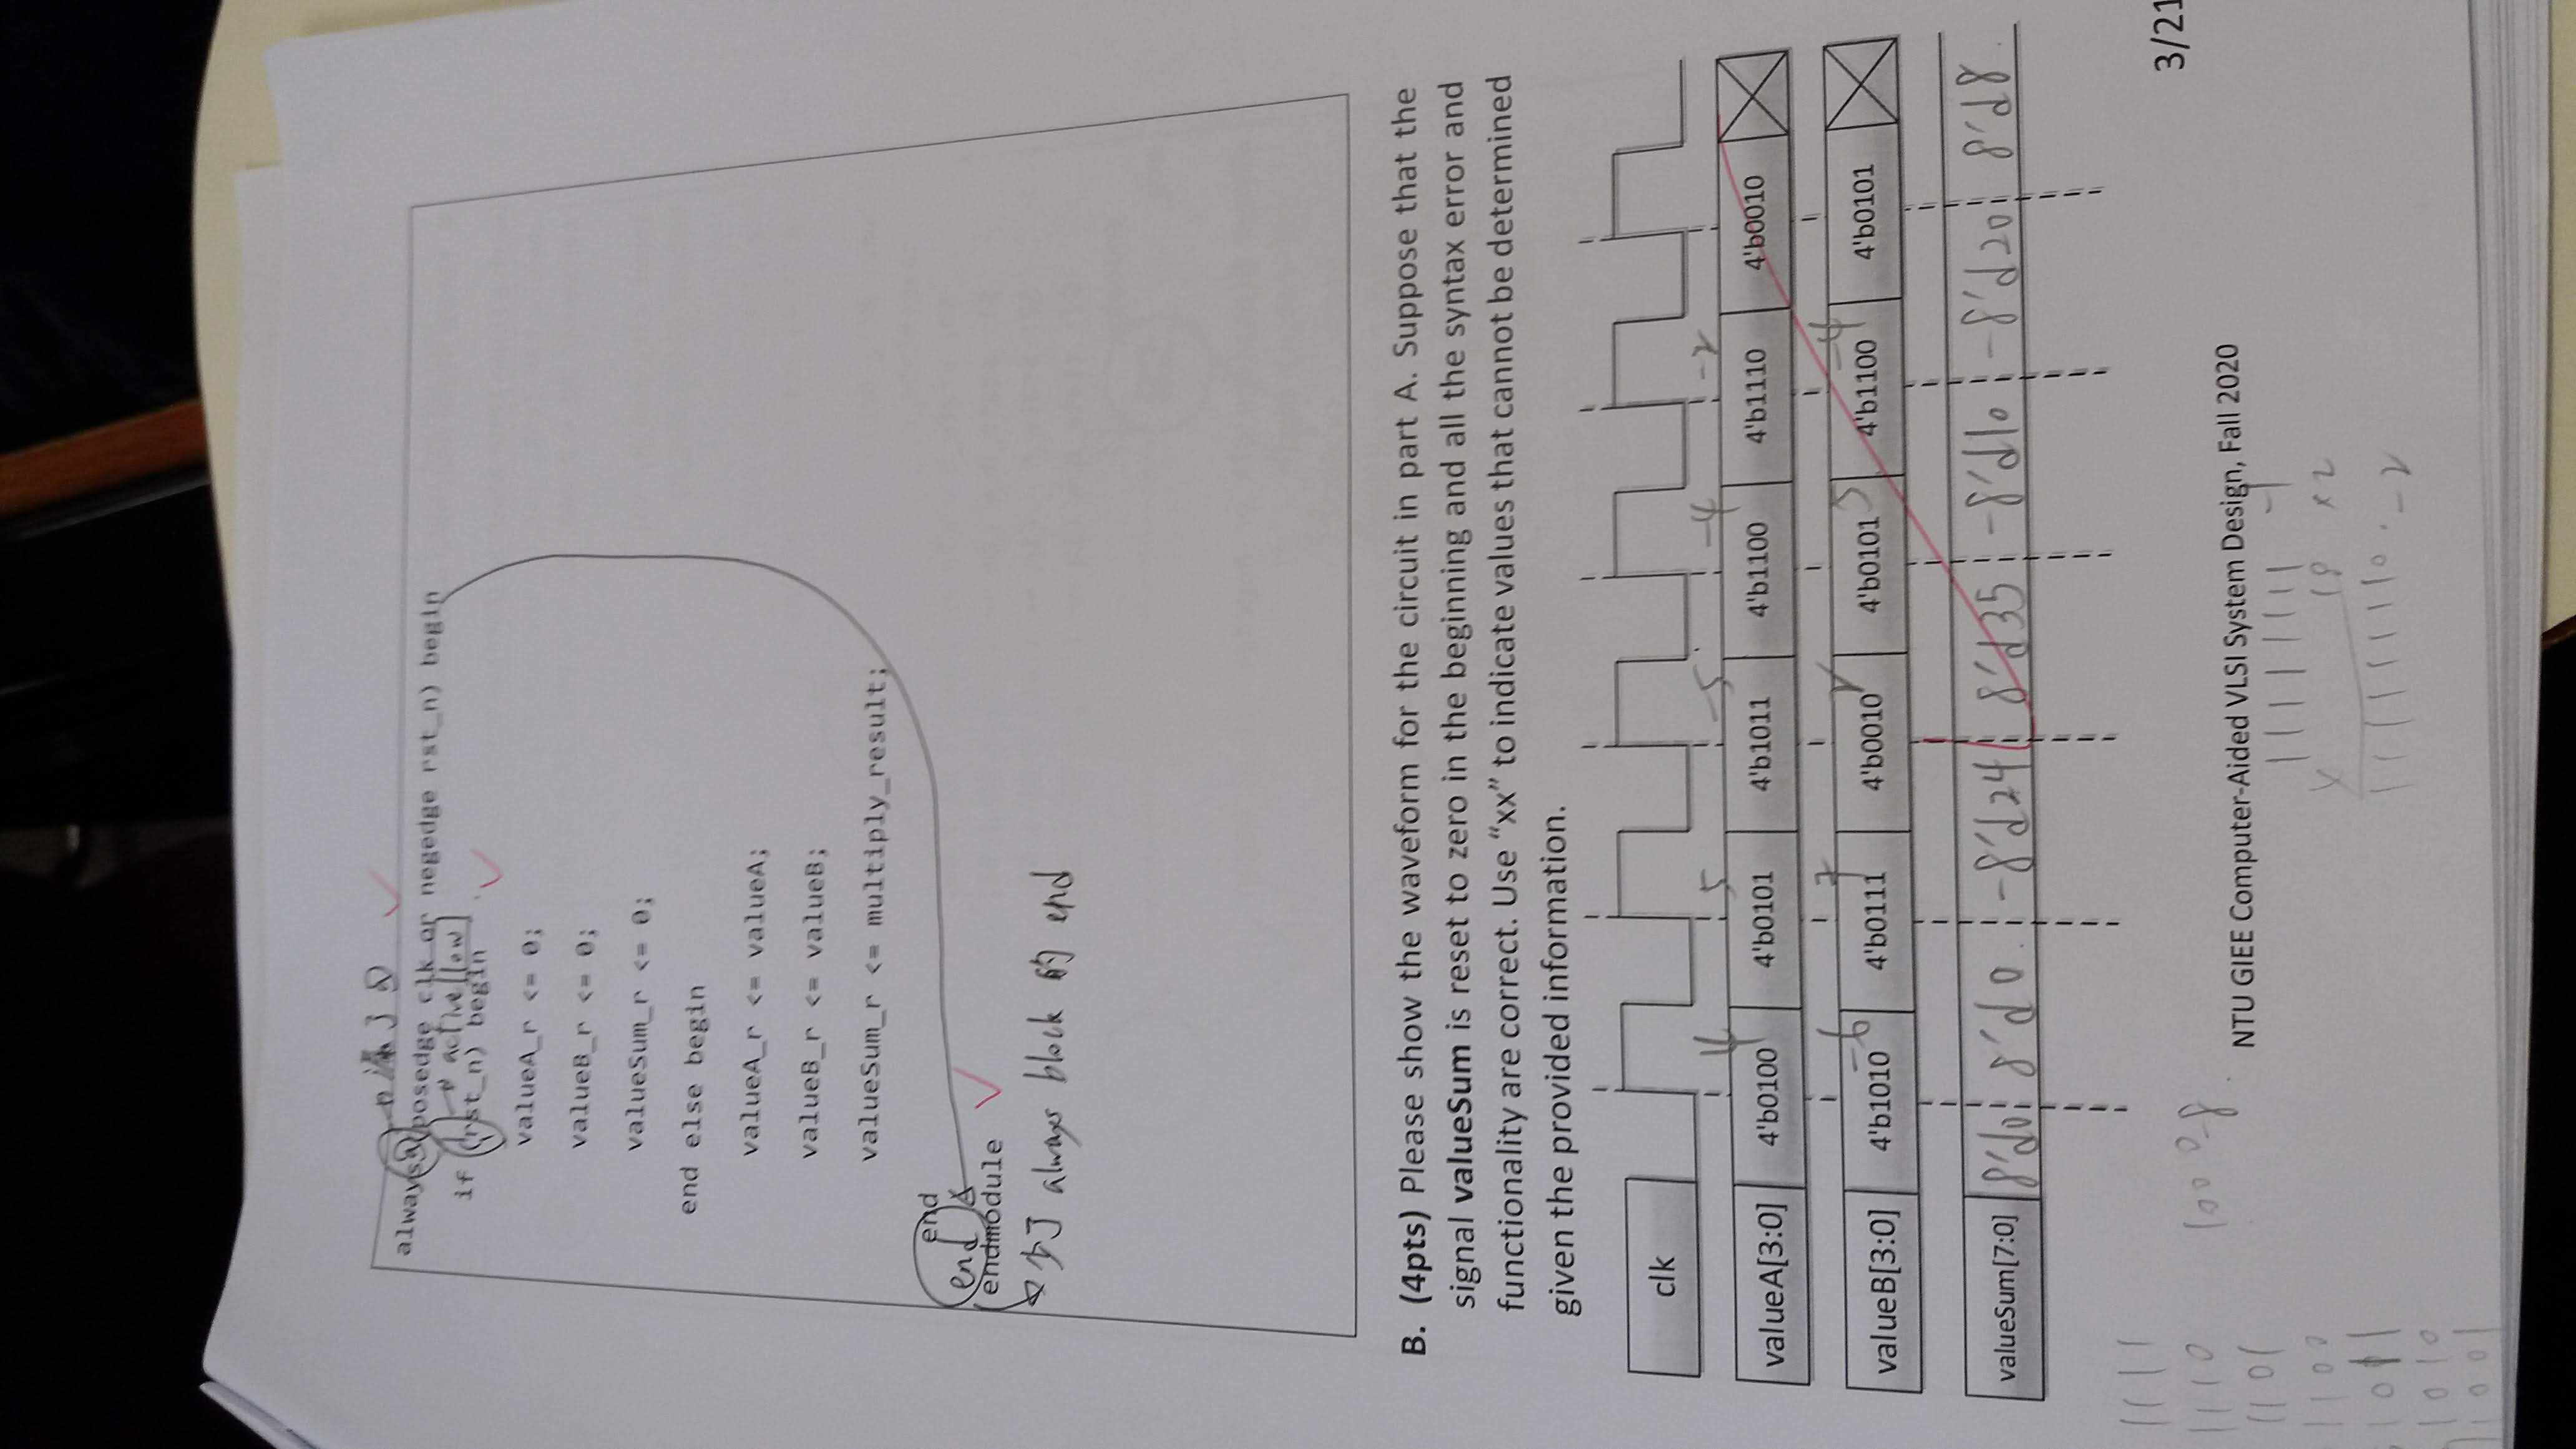 漏了@
always@(posedge clk or negedge rst_n) begin
active low
if (!rst_n) begin
valueA_r <= 0;
valueB_r <= 0;
valueSum_r <= 0;
end else begin
valueA_r <= valueA;
valueB_r <= valueB;
valueSum_r <= multiply_result;
end
end
endmodule
少了 always block 的 end
B. (4pts) Please show the waveform for the circuit in part A. Suppose that the
signal valueSum is reset to zero in the beginning and all the syntax error and
functionality are correct. Use “xx” to indicate values that cannot be determined
given the provided information.
clk
4 5 -5 -4 -2
valueA[3:0] 4'b0100 4'b0101 4'b1011 4'b1100 4'b1110 4'b0010
-6 7 2 5 -4
valueB[3:0] 4'b1010 4'b0111 4'b0010 4'b0101 4'b1100 4'b0101
valueSum[7:0] 8'd0 8'd0 -8'd24 8'd35 -8'd10 -8'd20 8'd8
3/21
1111
1110
1000 -8
NTU GIEE Computer-Aided VLSI System Design, Fall 2020
1101
11111111 -1
1100
x2
1011
-2
1010
1001